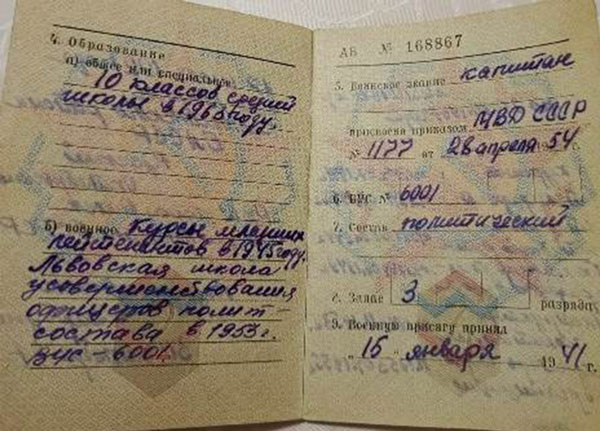 4. Образование
а) общее или специальное
10 классов средней
школы в 1963 году.
б) военное Курсы младших
лейтенантов в 1945 году.
Львовская школа
усовершенствования
офицеров полит-
состава в 1953 г.
ВУС-6001
АБ № 168867
5. Воинское звание капитан
присвоено приказом МВД СССР
№ 1177 от 28 апреля 1954 г.
6. ВУС № 6001
7. Состав политический
8. Запас 3 разряда
9. Военную присягу принял
"15" января 1941 г.